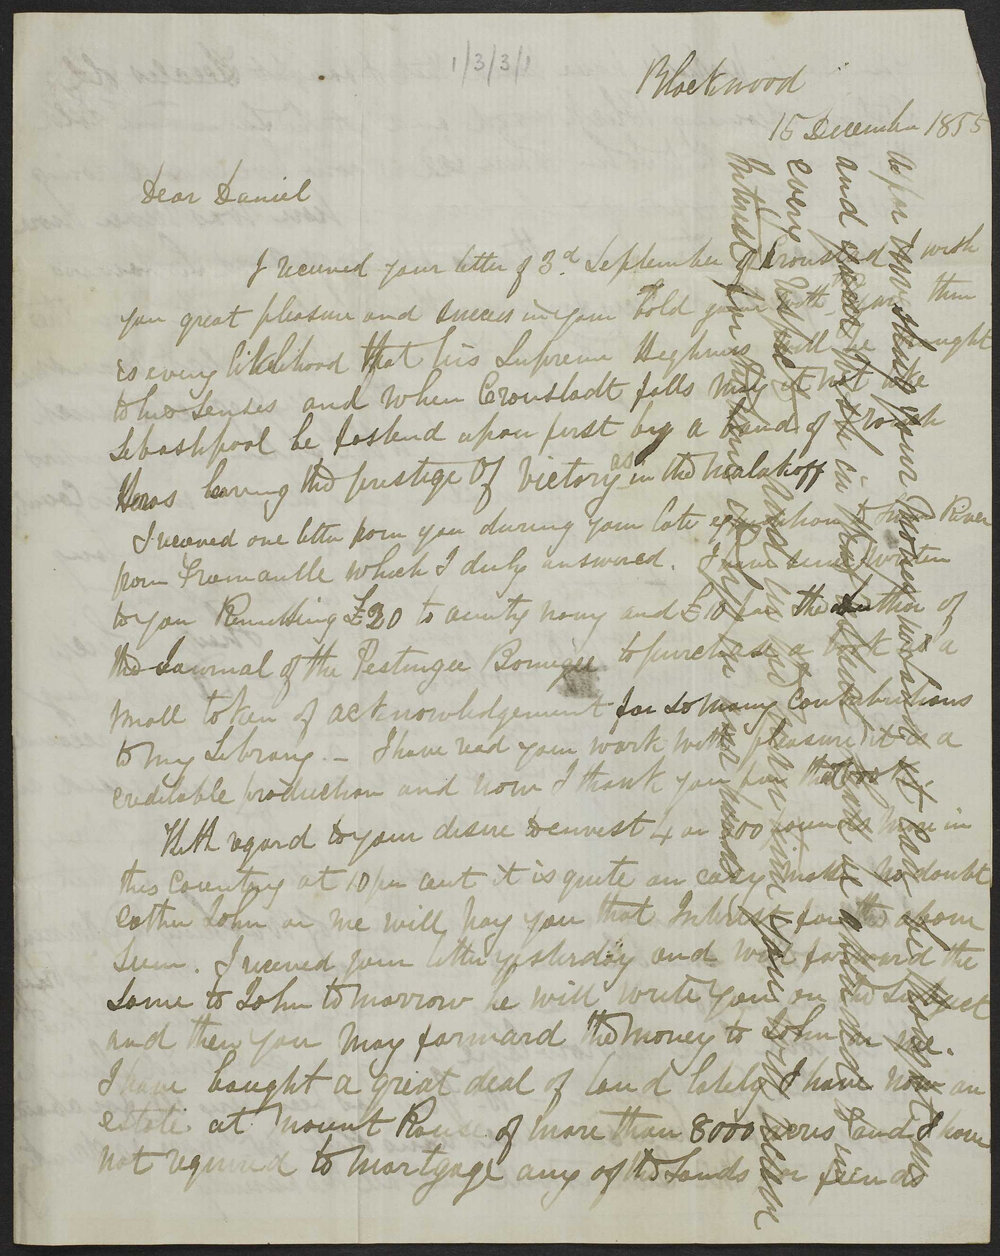 1/3/3/1
Blackwood
15 December 1855
Dear Daniel
I received your letter of 3.d September of Cronstad I wish
you great pleasure and success in your bold game with there
is every likelihood that his Supreme Highness will be brought
to his senses and when Cronstadt falls may it not like
Sebasthpool be fastend upon first by a band of rough
Heros leaving the prestige Of Victory as in the Malakoff
I received one letter from you during your late Swan River
from Fremantle which I duly answered. I have since written
to you Remitting £20 to aunty nany and £10 for the author of
the Journal of the to purchase a book as a
small token of acknowledgement for so many Contributions
to my Library. – I have read your work with pleasure it is a
creditable production and now I thank you for that book
With regard to your desire to envest 4 or 500 pounds more in
this Country at 10 per cent it is quite an easy matter no doubt
eather John or me will pay you that Interest for the above
Sum. I received your letter yesterday and will forward the
Same to John tomorrow he will write you on the Subject
and then you may forward the money to John or me.
I have bought a great deal of land lately I have now an
estate at Mount Rouse of more than 8000 acres and I have
not required to mortgage any of the Lands or feends
as for our Mother portrait it can be
and in that Island and be obtained
every and his your John
Interest for the in our hands